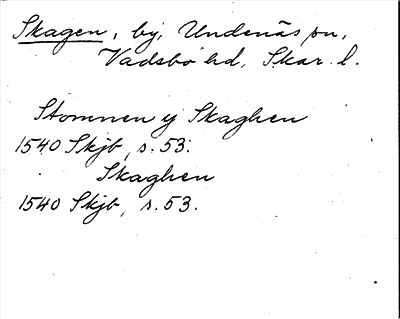 Skagen, by, Undenäs sn,
Vadsbo hd, Skar. l.
Stomnen y Skaghen
1540 Skjb, s. 53.
Skaghen
1540 Skjb, s. 53.